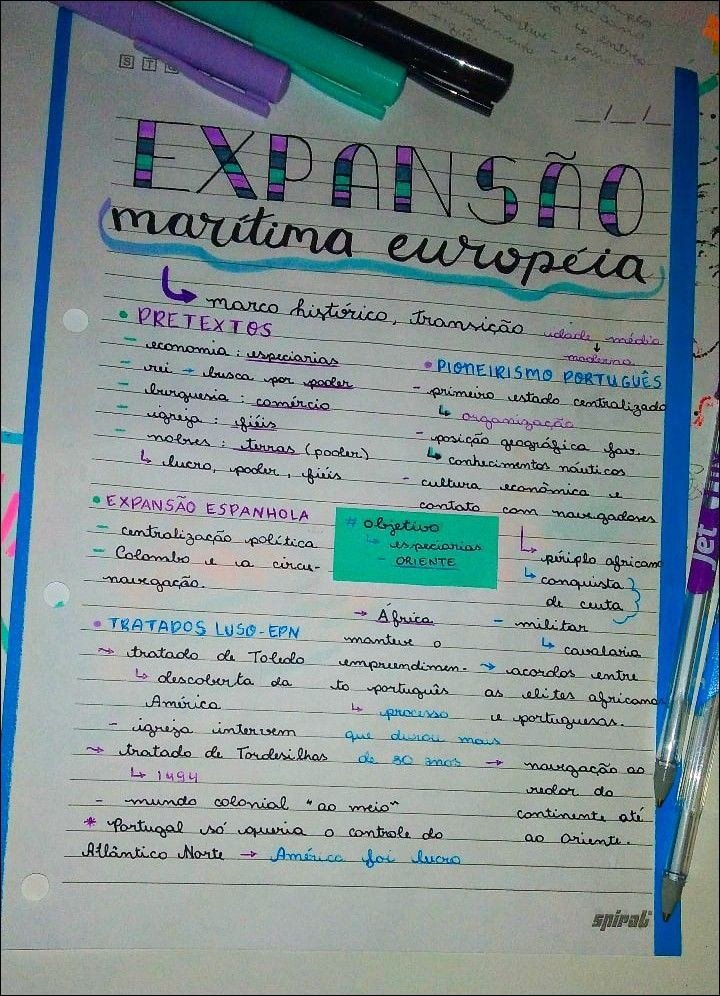 EXPANSÃO
marítima européia
↳ marco histórico, transição idade média
↓
moderna
• PRETEXTOS
- economia : especiarias
- rei → busca por poder
- burguesia : comércio
- igreja : fiéis
- nobres : terras (poder)
↳ lucro, poder, fiéis
• PIONEIRISMO PORTUGUÊS
- primeiro estado centralizado
↳ organização
- posição geográfica fav.
↳ conhecimentos náuticos
- cultura econômica e
contato com navegadores
↳ périplo africano
↳ conquista
de ceuta
• EXPANSÃO ESPANHOLA
- centralização política
- Colombo e a circu-
navegação.
# objetivo
↳ especiarias
- ORIENTE
• TRATADOS LUSO-EPN
~> tratado de Toledo
↳ descoberta da
América
- igreja intervem
~> tratado de Tordesilhas
↳ 1494
- mundo colonial "ao meio"
* Portugal só queria o controle do
Atlântico Norte → América foi lucro
→ África
manteve o
empreendimen-
to português
↳ processo
que durou mais
de 80 anos
- militar
↳ cavalaria
→ acordos entre
as elites africanas
e portuguesas.
→ navegação ao
redor do
continente até
ao oriente.
spiral
Jet